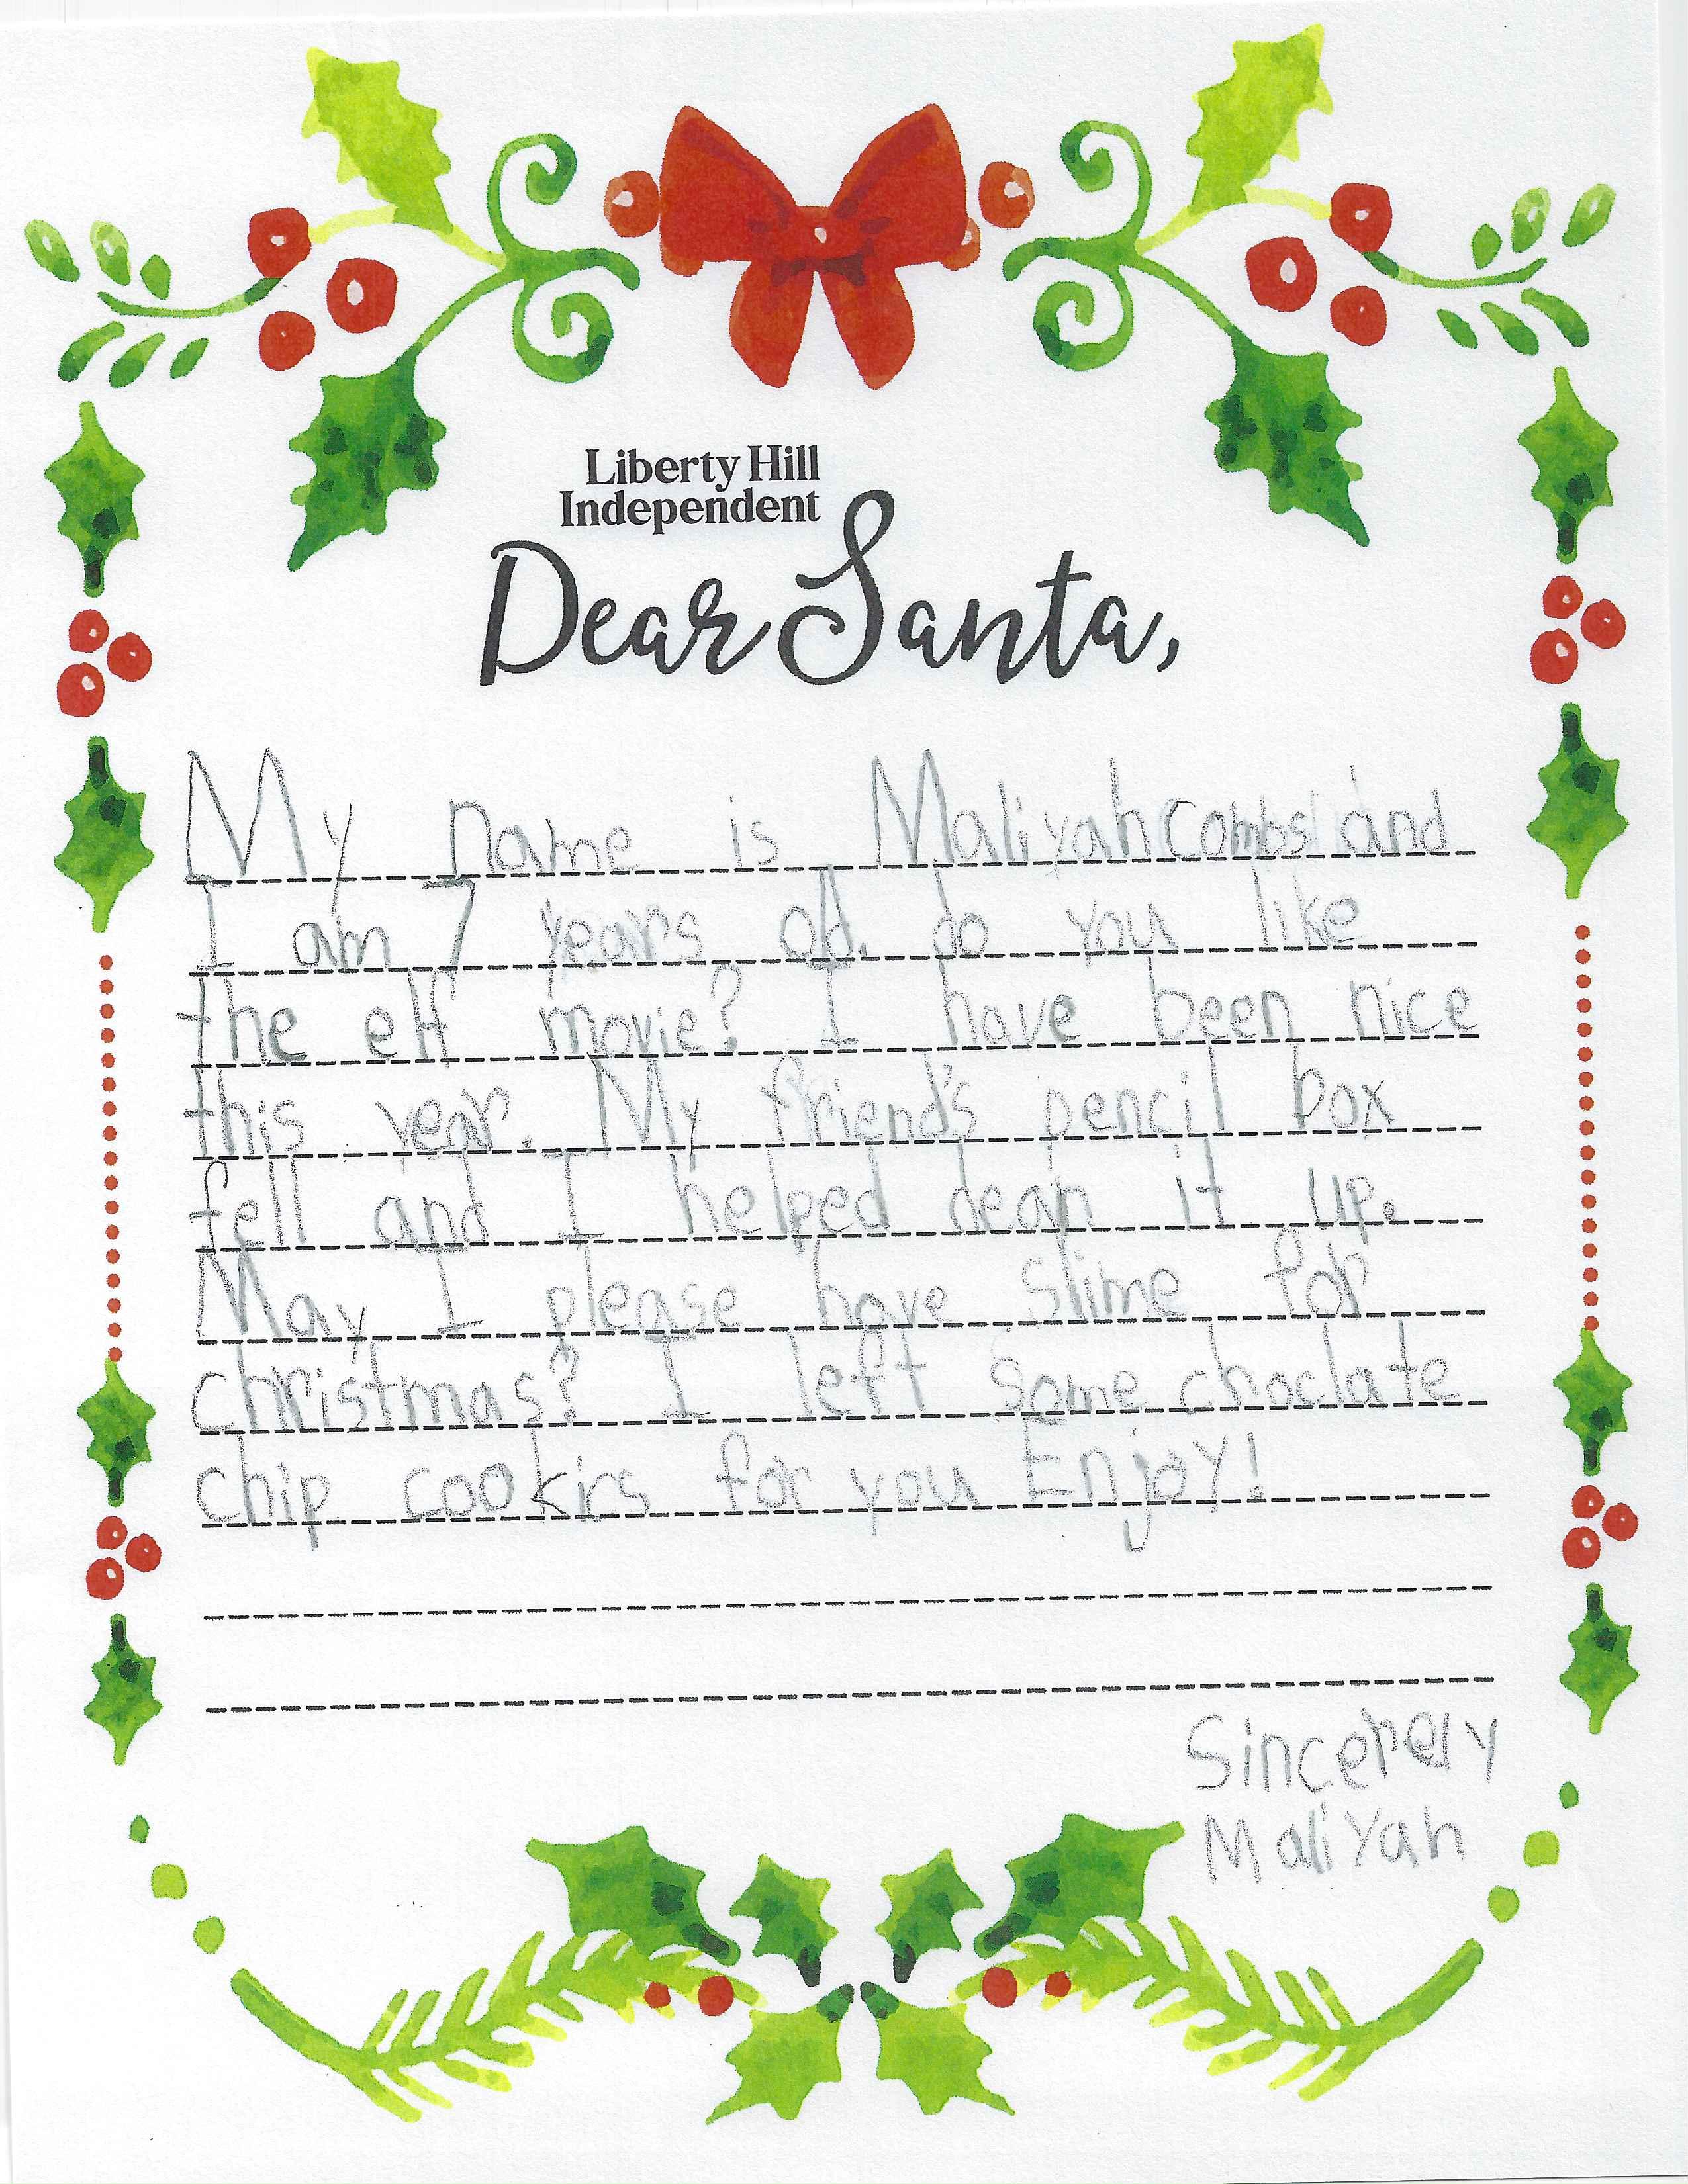 Liberty Hill
Independent
Dear Santa,
My name is Maliyah combs and
I am 7 years old. do you like
the elf movie? I have been nice
this year. My friend's pencil box
fell and I helped clean it up.
May I please have slime for
christmas? I left some choclate
chip cookirs for you Enjoy!
Sincerely
Maliyah